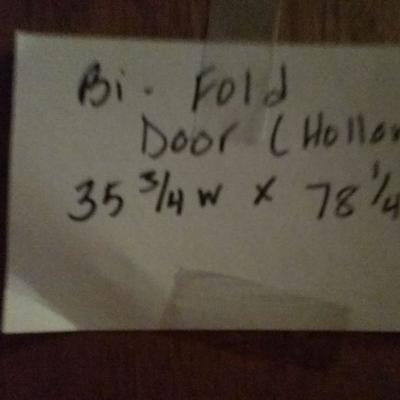 Bi- Fold
Door (Hollo
35 3/4 W x 78 1/4